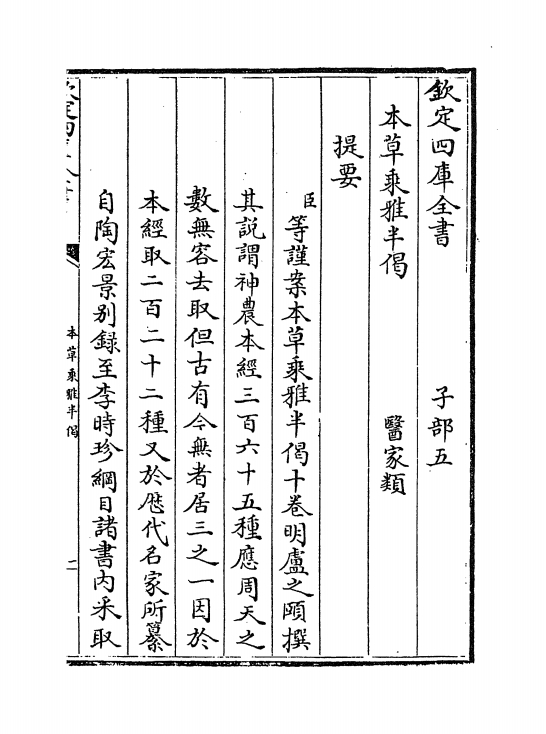 欽定四庫全書 子部五
本草乘雅半偈 醫家類
提要
臣等謹案本草乘雅半偈十卷明盧之頤撰
其說謂神農本經三百六十五種應周天之
數無容去取但古有今無者居三之一因於
本經取二百二十二種又於歴代名家所纂
自陶宏景别録至李時珍綱目諸書内采取
本草乘雅半偈
二